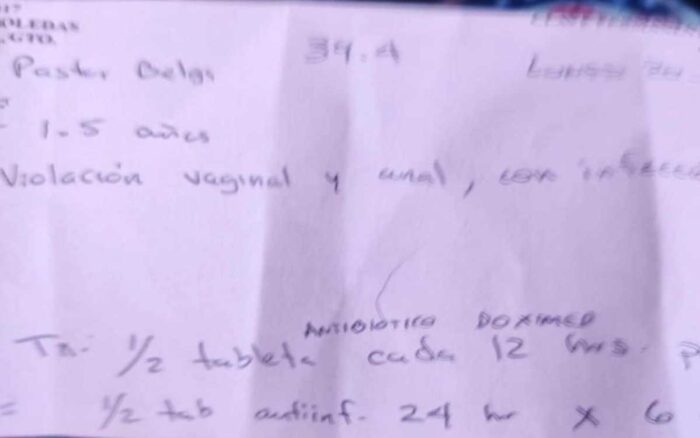 OLEDAS
GTO.
39.4
Pastor Belga
1.5 años
Violación vaginal y anal, con
ANTIBIOTICO DOXIMED
Tx: 1/2 tableta cada 12 hrs.
= 1/2 tab antiinf. 24 hr x 6